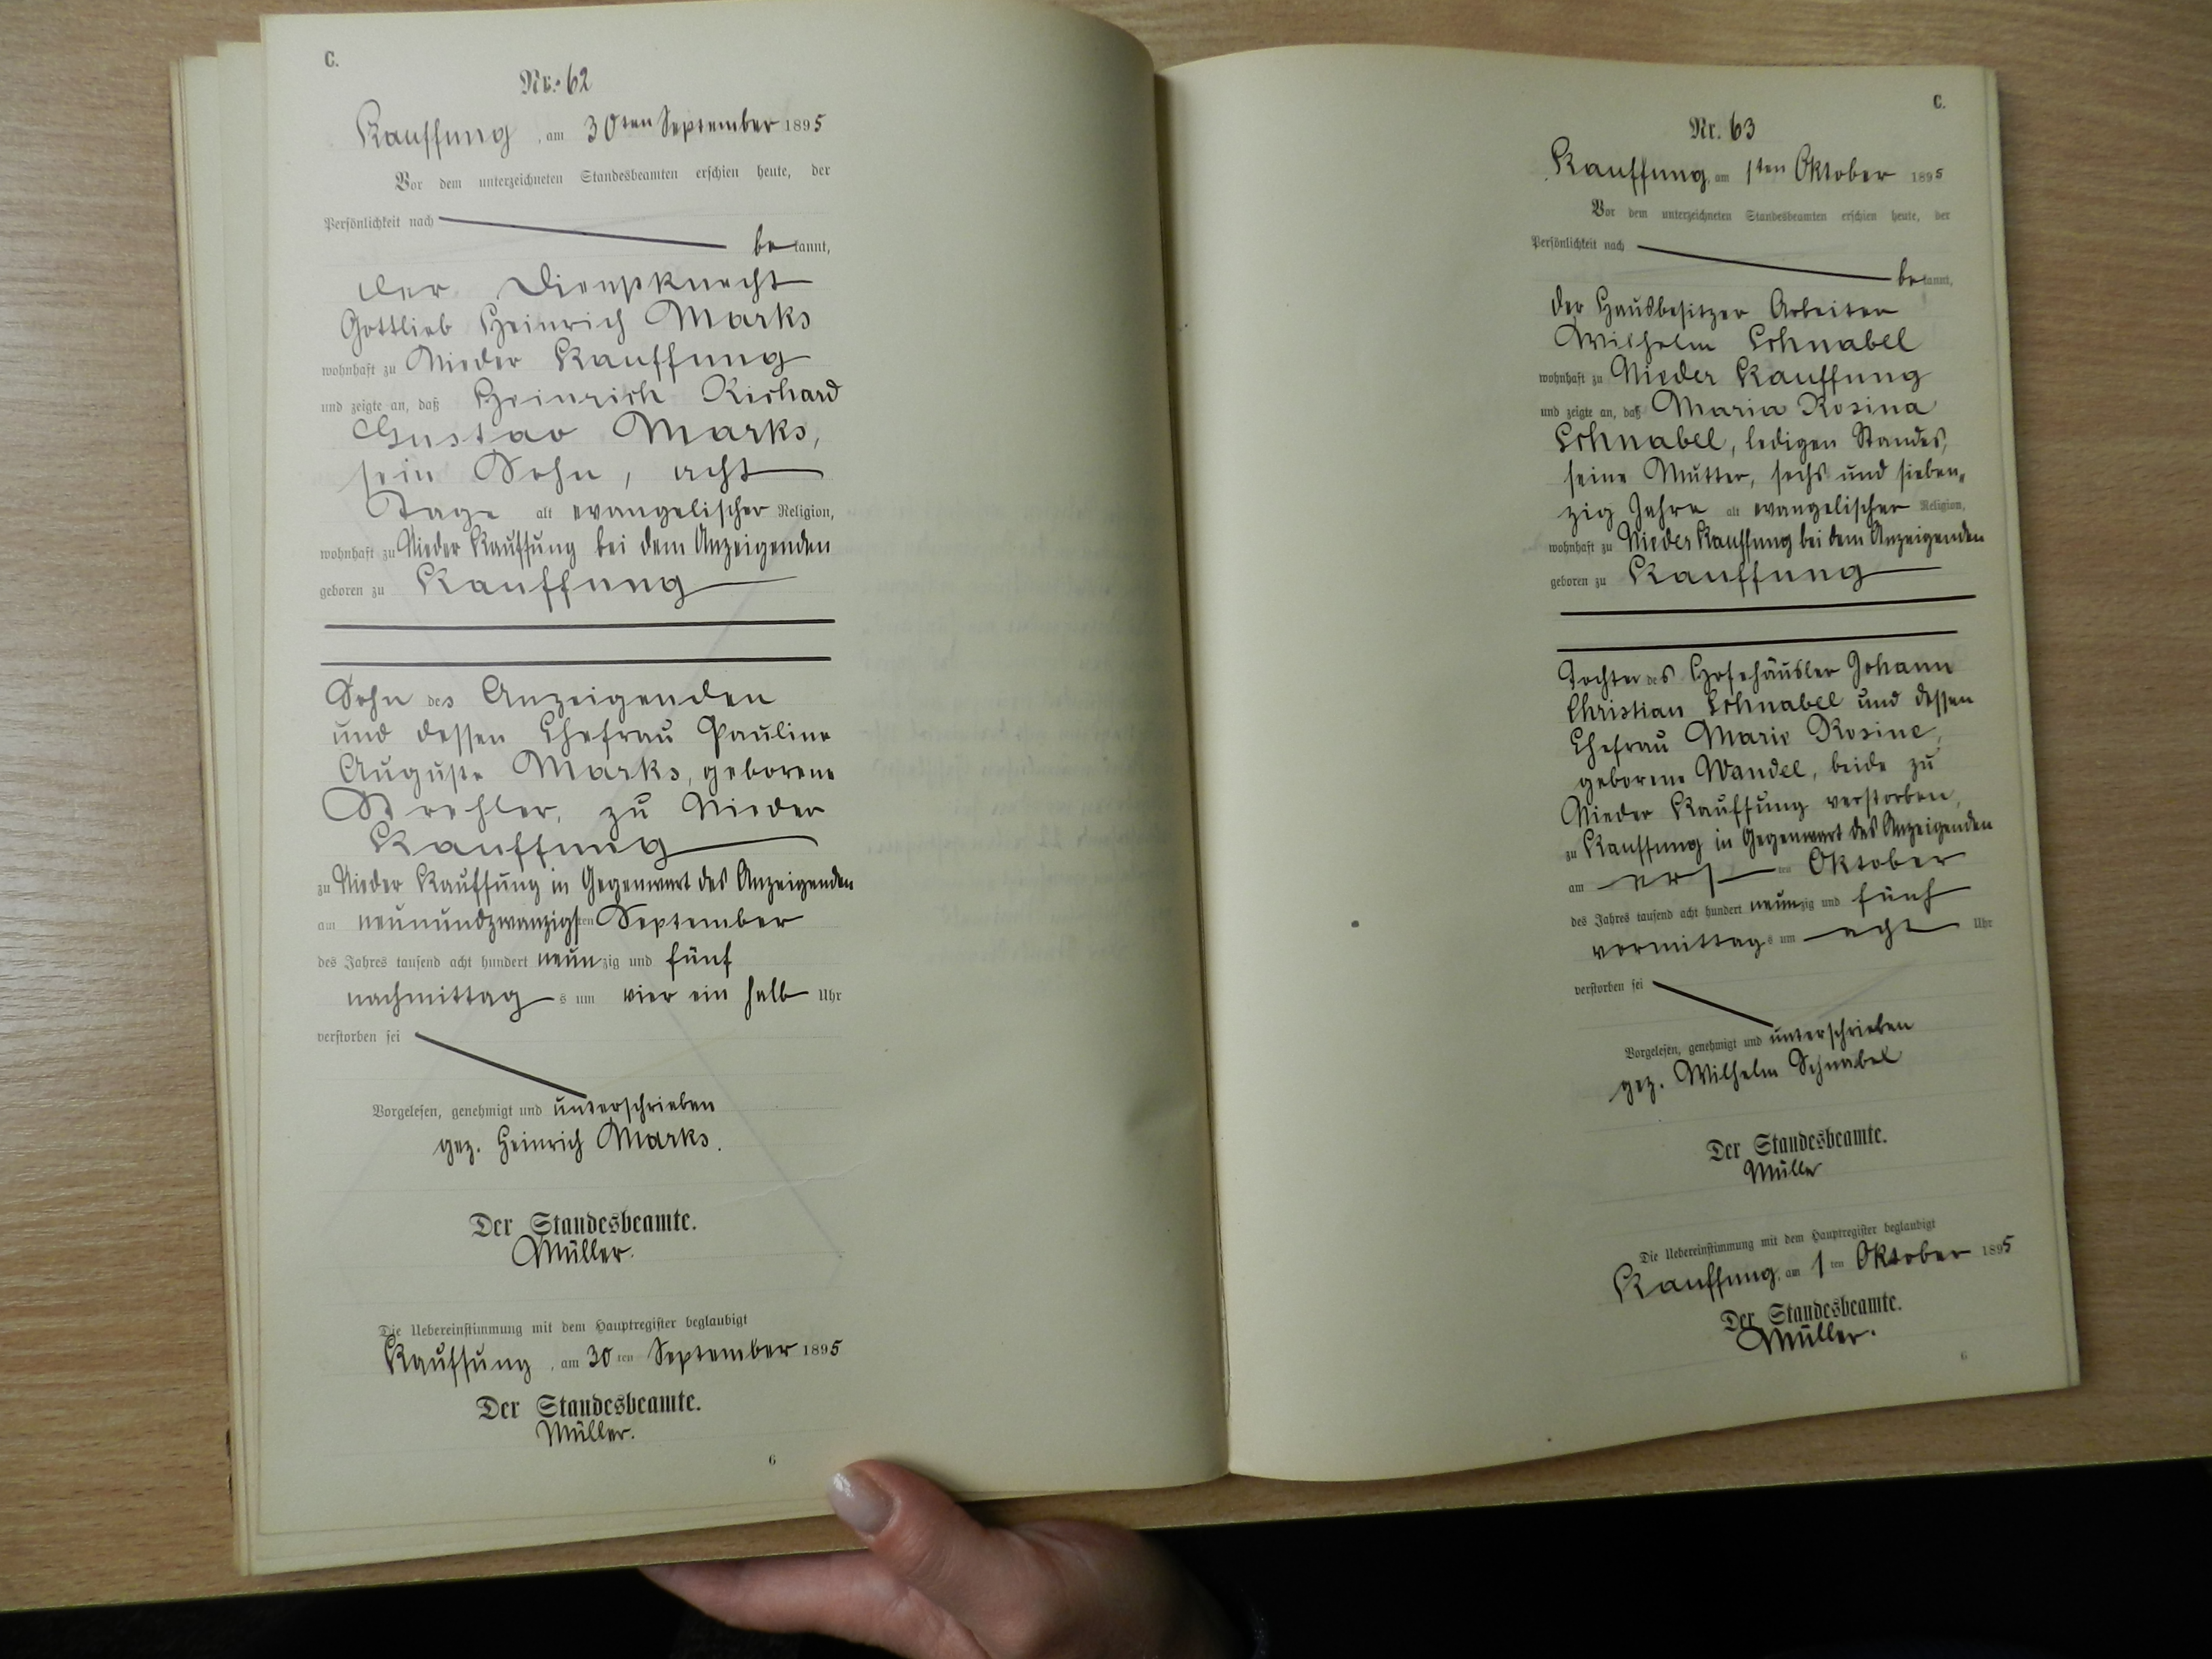 C.
Nr. 62
Kauffung, am 30ten September 1895
Vor dem unterzeichneten Standesbeamten erschien heute, der
Persönlichkeit nach
bekannt,
der Dienstknecht
Gottlieb Heinrich Marks
wohnhaft zu Nieder Kauffung
und zeigte an, daß Heinrich Richard
Gustav Marks,
sein Sohn, acht
Tage alt evangelischer Religion,
wohnhaft zu Nieder Kauffung bei dem Anzeigenden
geboren zu Kauffung
Sohn des Anzeigenden
und dessen Ehefrau Pauline
Auguste Marks, geborene
Strehler, zu Nieder
Kauffung
zu Nieder Kauffung in Gegenwart des Anzeigenden
am neunundzwanzigsten September
des Jahres tausend acht hundert neunzig und fünf
nachmittags um vier ein halb Uhr
verstorben sei
Vorgelesen, genehmigt und unterschrieben
gez. Heinrich Marks.
Der Standesbeamte.
Müller.
Die Uebereinstimmung mit dem Hauptregister beglaubigt
Kauffung, am 30ten September 1895
Der Standesbeamte.
Müller.
6
C.
Nr. 63
Kauffung, am 1ten Oktober 1895
Vor dem unterzeichneten Standesbeamten erschien heute, der
Persönlichkeit nach
bekannt,
der Hausbesitzer Arbeiter
Wilhelm Schnabel
wohnhaft zu Nieder Kauffung
und zeigte an, daß Maria Rosina
Schnabel, ledigen Standes,
seine Mutter, sechs und sieben„
zig Jahre alt evangelischer Religion,
wohnhaft zu Nieder Kauffung bei dem Anzeigenden
geboren zu Kauffung
Tochter des Hofehäusler Johann
Christian Schnabel und dessen
Ehefrau Marie Rosine,
geborene Wandel, beide zu
Nieder Kauffung verstorben,
zu Kauffung in Gegenwart des Anzeigenden
am ersten Oktober
des Jahres tausend acht hundert neunzig und fünf
vormittags um acht Uhr
verstorben sei
Vorgelesen, genehmigt und unterschrieben
gez. Wilhelm Schnabel
Der Standesbeamte.
Müller
Die Uebereinstimmung mit dem Hauptregister beglaubigt
Kauffung, am 1ten Oktober 1895
Der Standesbeamte.
Müller.
6